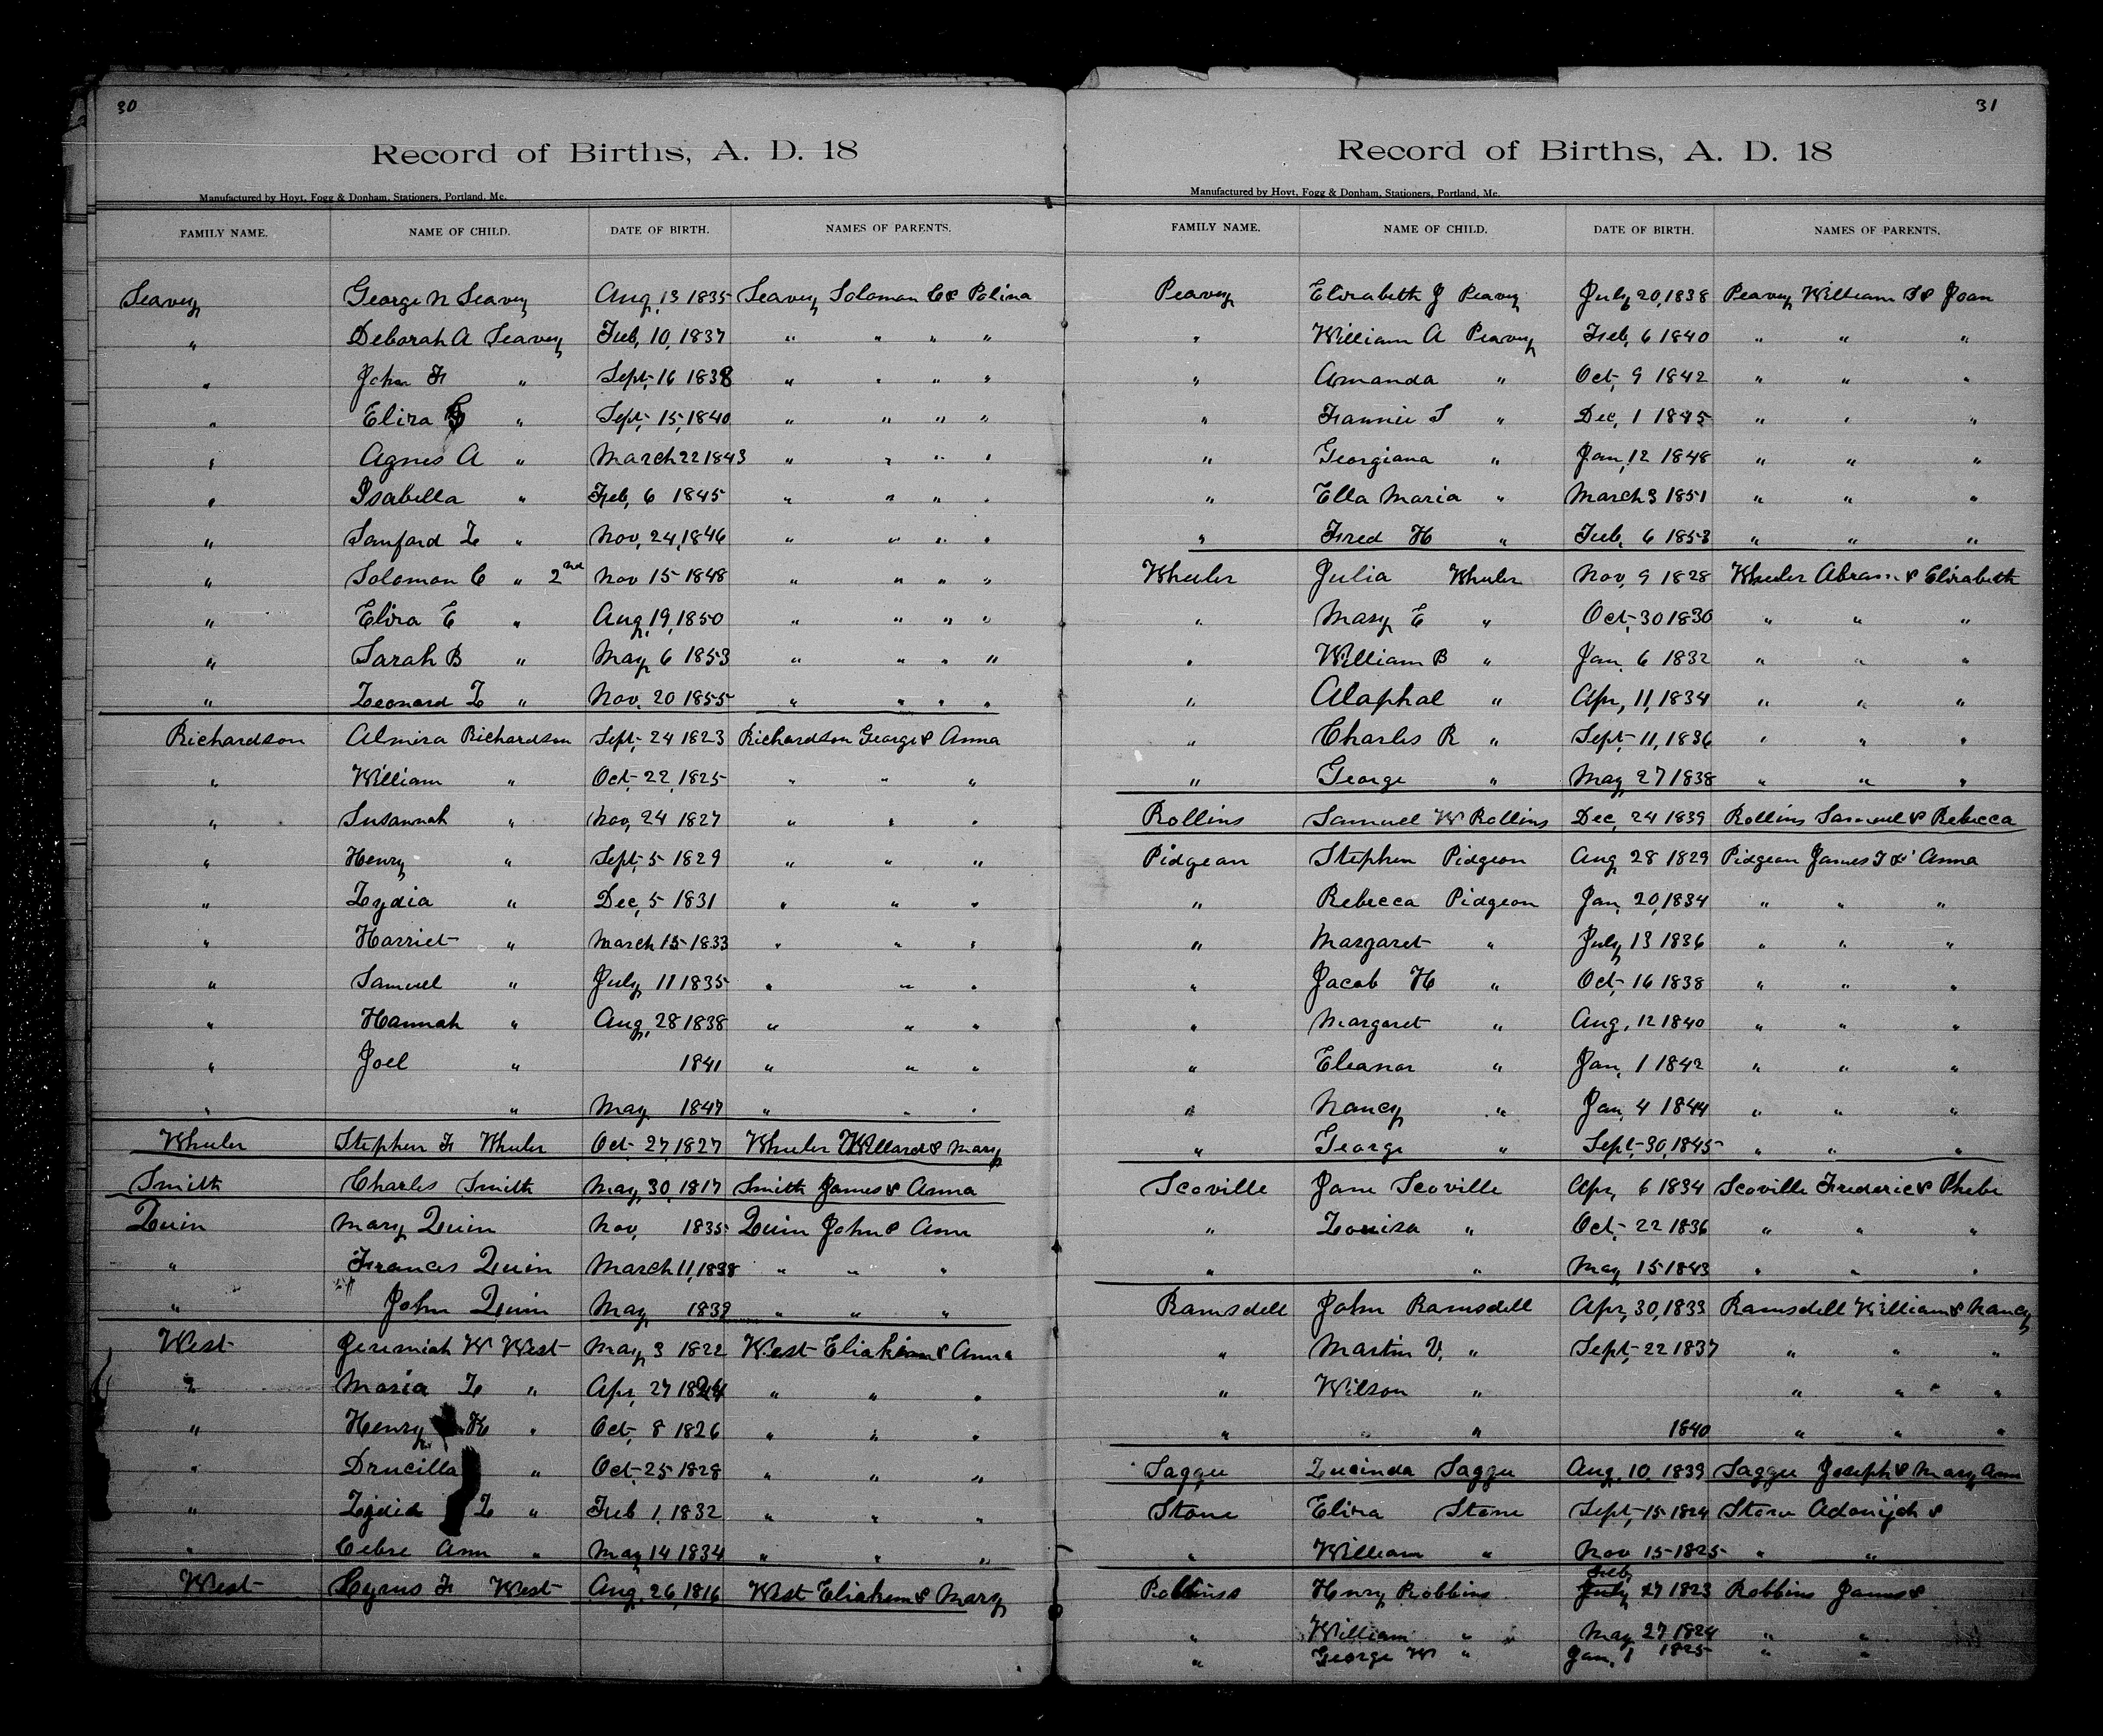 30
Record of Births, A. D. 18
Manufactured by Hoyt, Fogg & Donham, Stationers, Portland, Me.
FAMILY NAME. NAME OF CHILD. DATE OF BIRTH. NAMES OF PARENTS.
Seavey George N Seavey Aug, 13, 1835 Seavey Solomon C & Polina
" Deborah A Seavey Feb, 10, 1837 " " " "
" John F " Sept, 16 1838 " " " "
" Eliza " Sept, 15, 1840 " " " "
" Agnes A " March 22 1843 " " " "
" Isabella " Feb, 6 1845 " " " "
" Sanford L " Nov, 24, 1846 " " " "
" Solomon C " 2nd Nov 15 1848 " " " "
" Eliza E " Aug, 19, 1850 " " " "
" Sarah B " May 6 1853 " " " "
" Leonard L " Nov, 20 1855 " " " "
Richardson Almira Richardson Sept, 24 1823 Richardson George & Anna
" William " Oct, 22, 1825 " " "
" Susannah " Nov, 24 1827 " " "
" Henry " Sept, 5 1829 " " "
" Lydia " Dec, 5 1831 " " "
" Harriet " March 15 1833 " " "
" Samuel " July 11 1835 " " "
" Hannah " Aug, 28 1838 " " "
" Joel " 1841 " " "
" " May 1847 " " "
Wheeler Stephen F Wheeler Oct, 27, 1827 Wheeler Willard & Mary
Smith Charles Smith May, 30, 1817 Smith James & Anna
Quin Mary Quin Nov, 1835 Quin John & Ann
" Frances Quin March 11, 1838 " " "
" John Quin May 1839 " " "
West Jeremiah W West May 3 1822 West Eliakim & Anna
" Maria L " Apr, 27 1824 " " "
" Henry K " Oct, 8 1826 " " "
" Drucilla " Oct, 25 1828 " " "
" Lydia L " Feb 1, 1832 " " "
" Cebre Ann " May 14 1834 " " "
West Cyrus F West Aug, 26, 1816 West Eliakim & Mary
31
Record of Births, A. D. 18
Manufactured by Hoyt, Fogg & Donham, Stationers, Portland, Me.
FAMILY NAME. NAME OF CHILD. DATE OF BIRTH. NAMES OF PARENTS.
Peavey Elizabeth J Peavey July 20, 1838 Peavey William S & Joan
" William A Peavey Feb, 6 1840 " " "
" Amanda " Oct, 9 1842 " " "
" Fannie S " Dec, 1 1845 " " "
" Georgiana " Jan, 12 1848 " " "
" Ella Maria " March 3 1851 " " "
" Fred H " Feb, 6 1853 " " "
Wheeler Julia Wheeler Nov, 9 1828 Wheeler Abram & Elizabeth
" Mary E " Oct, 30 1830 " " "
" William B " Jan, 6 1832 " " "
" Alaphal " Apr, 11, 1834 " " "
" Charles R " Sept, 11, 1836 " " "
" George " May 27 1838 " " "
Rollins Samuel W Rollins Dec, 24 1839 Rollins Samuel & Rebecca
Pidgeon Stephen Pidgeon Aug 28 1829 Pidgeon James T & Anna
" Rebecca Pidgeon Jan, 20, 1834 " " "
" Margaret " July 13 1836 " " "
" Jacob H " Oct, 16 1838 " " "
" Margaret " Aug, 12 1840 " " "
" Eleanor " Jan, 1 1842 " " "
" Nancy " Jan, 4 1844 " " "
" George " Sept, 30, 1845 " " "
Scoville Jane Scoville Apr, 6 1834 Scoville Frederic & Phebe
" Louisa " Oct, 22 1836 " " "
" " May 15 1843 " " "
Ramsdell John Ramsdell Apr, 30, 1833 Ramsdell William & Nancy
" Martin V. " Sept, 22 1837 " " "
" Wilson " " " "
" " " 1840 " " "
Saggee Lucinda Saggee Aug, 10, 1839 Saggee Joseph & Mary Ann
Stone Eliza Stone Sept, 15 1824 Stone Adonijah &
" William " Nov 15 1825 " "
Robbins Henry Robbins Feb, July 27 1823 Robbins James &
" William " May 27 1824 " "
" George W " Jan, 1 1825 " "